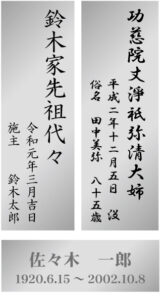 功慈院丈淨祇弥清大姉
平成二年十二月五日 没
俗名 田中美弥 八十五歳
鈴木家先祖代々
令和元年三月吉日
施主 鈴木太郎
佐々木 一郎
1920.6.15～2002.10.8